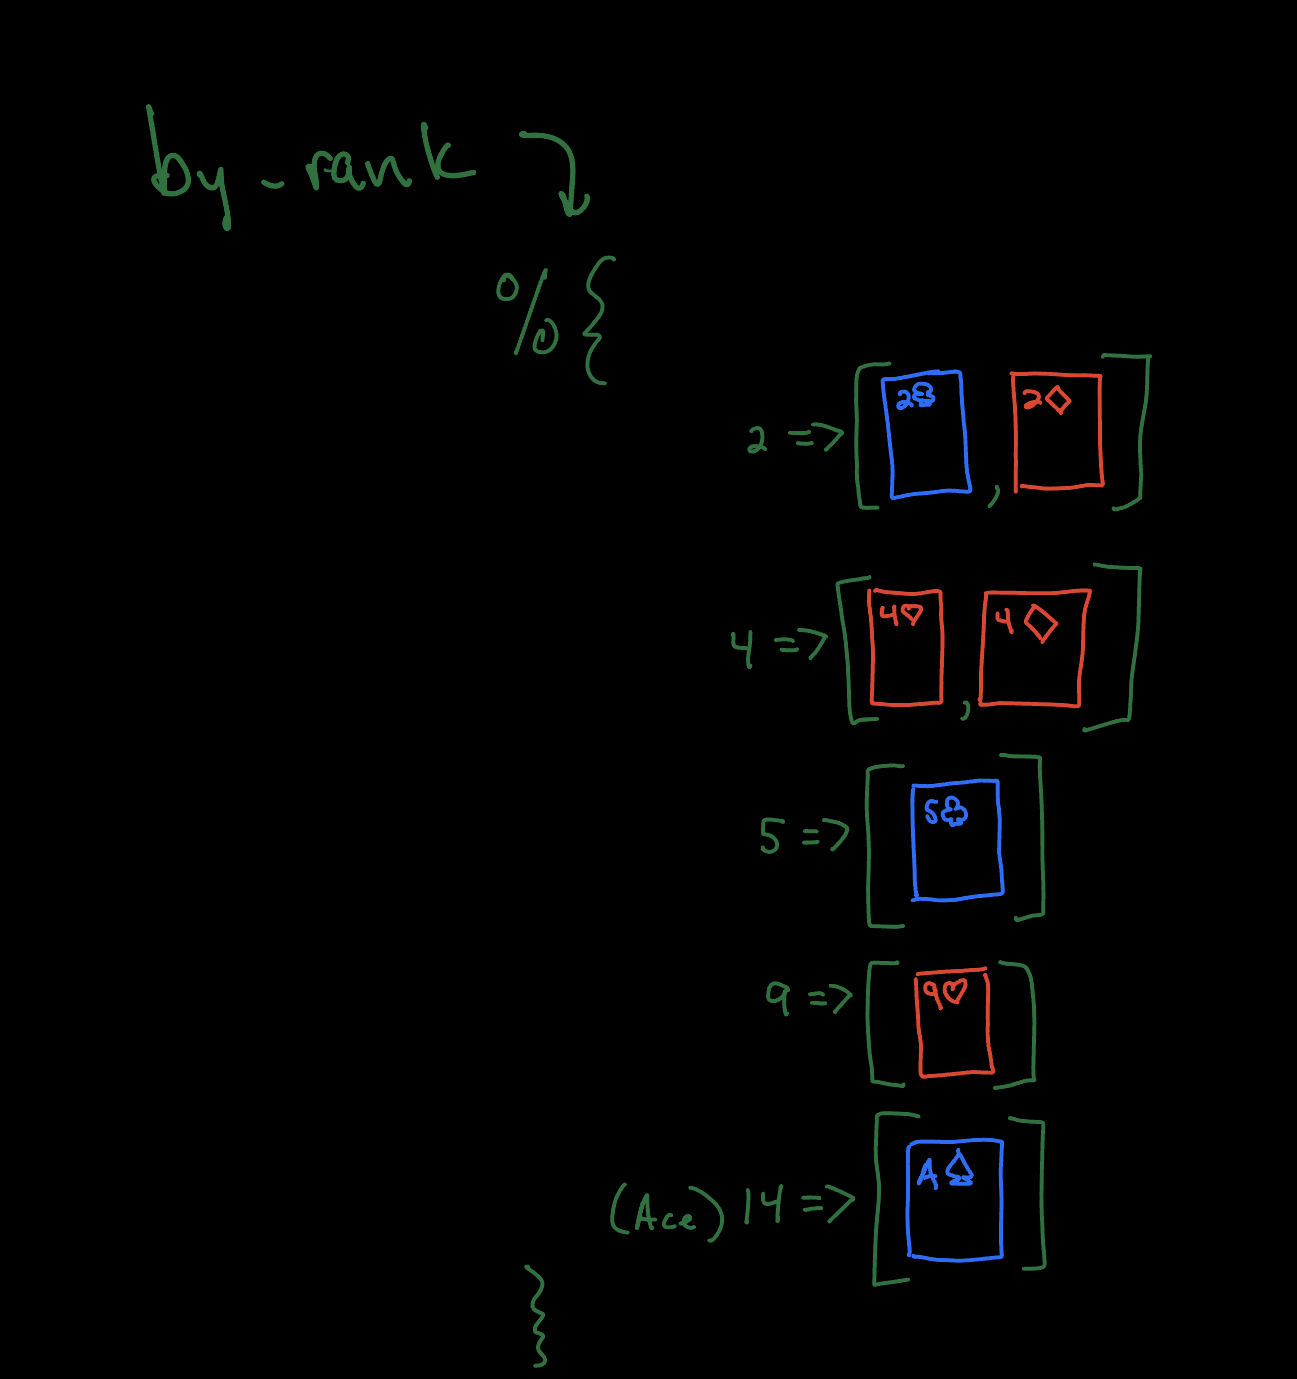 by_rank
%{
2 => [2♣, 2♢]
4 => [4♡, 4♢]
5 => [5♧]
9 => [9♡]
(Ace) 14 => [A♤]
}